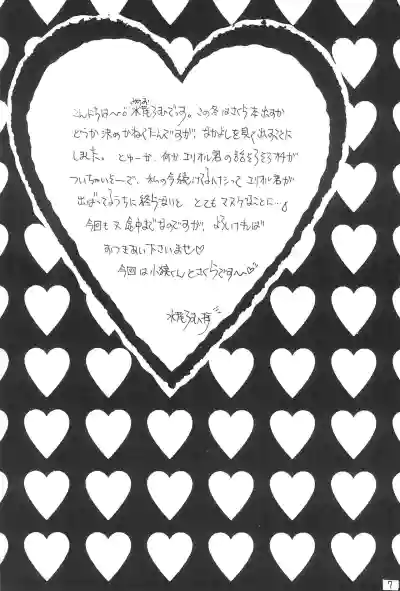 こんにちは〜。水尾ろむひです。この冬はさくら本出すか
どうか決めかねてたんですが、なかよしを見て出すことに
しました。とゆーか、何かエリオル君の話もそろそろ
ついちゃいそーで、私の今続けてるのだってエリオル君が
出ばってるうちに終らないと とてもマヌケなことに…
今回も又途中までなのですが、よろしければ
おつきあい下さいませ♡
今回は小狼くんとさくらです〜♡
7